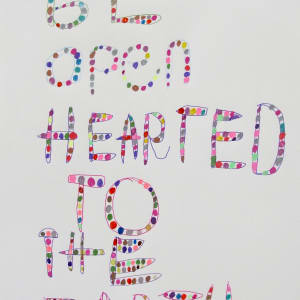 BE
open
HEARTED
TO
THE